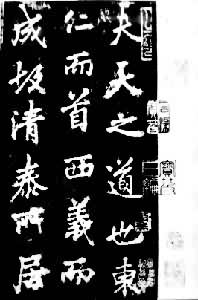 夫天之道也東
仁而首西義而
成故清泰所居